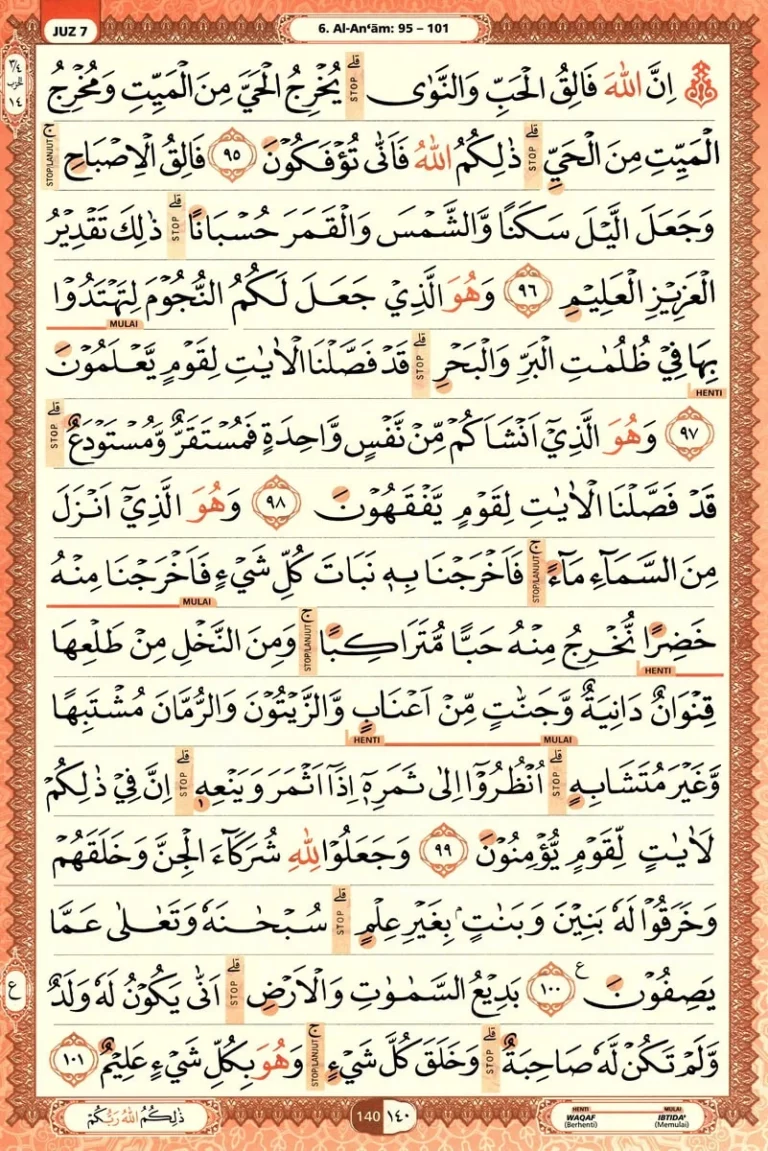 JUZ 7
6. Al-An‘ām: 95 – 101
اِنَّ اللّٰهَ فَالِقُ الْحَبِّ وَالنَّوٰى ۗ STOP يُخْرِجُ الْحَيَّ مِنَ الْمَيِّتِ وَمُخْرِجُ
الْمَيِّتِ مِنَ الْحَيِّ ۗ STOP ذٰلِكُمُ اللّٰهُ فَاَنّٰى تُؤْفَكُوْنَ ٩٥ فَالِقُ الْاِصْبَاحِ ۚ STOP/LANJUT
وَجَعَلَ الَّيْلَ سَكَنًا وَّالشَّمْسَ وَالْقَمَرَ حُسْبَانًا ۗ STOP ذٰلِكَ تَقْدِيْرُ
الْعَزِيْزِ الْعَلِيْمِ ٩٦ وَهُوَ الَّذِيْ جَعَلَ لَكُمُ النُّجُوْمَ لِتَهْتَدُوْا
MULAI
بِهَا فِيْ ظُلُمٰتِ الْبَرِّ وَالْبَحْرِ ۗ STOP قَدْ فَصَّلْنَا الْاٰيٰتِ لِقَوْمٍ يَّعْلَمُوْنَ
HENTI
٩٧ وَهُوَ الَّذِيْٓ اَنْشَاَكُمْ مِّنْ نَّفْسٍ وَّاحِدَةٍ فَمُسْتَقَرٌّ وَّمُسْتَوْدَعٌ ۗ STOP
قَدْ فَصَّلْنَا الْاٰيٰتِ لِقَوْمٍ يَّفْقَهُوْنَ ٩٨ وَهُوَ الَّذِيْٓ اَنْزَلَ
مِنَ السَّمَاۤءِ مَاۤءً ۚ STOP/LANJUT فَاَخْرَجْنَا بِهٖ نَبَاتَ كُلِّ شَيْءٍ فَاَخْرَجْنَا مِنْهُ
MULAI
خَضِرًا نُّخْرِجُ مِنْهُ حَبًّا مُّتَرَاكِبًا ۚ STOP/LANJUT وَمِنَ النَّخْلِ مِنْ طَلْعِهَا
HENTI
قِنْوَانٌ دَانِيَةٌ وَّجَنّٰتٍ مِّنْ اَعْنَابٍ وَّالزَّيْتُوْنَ وَالرُّمَّانَ مُشْتَبِهًا
MULAI HENTI
وَّغَيْرَ مُتَشَابِهٍ ۗ STOP اُنْظُرُوْٓا اِلٰى ثَمَرِهٖٓ اِذَآ اَثْمَرَ وَيَنْعِهٖ ۗ STOP اِنَّ فِيْ ذٰلِكُمْ
لَاٰيٰتٍ لِّقَوْمٍ يُّؤْمِنُوْنَ ٩٩ وَجَعَلُوْا لِلّٰهِ شُرَكَاۤءَ الْجِنَّ وَخَلَقَهُمْ
وَخَرَقُوْا لَهٗ بَنِيْنَ وَبَنٰتٍۢ بِغَيْرِ عِلْمٍ ۗ STOP سُبْحٰنَهٗ وَتَعٰلٰى عَمَّا
يَصِفُوْنَ ࣖ ١٠٠ بَدِيْعُ السَّمٰوٰتِ وَالْاَرْضِ ۗ STOP اَنّٰى يَكُوْنُ لَهٗ وَلَدٌ
وَّلَمْ تَكُنْ لَّهٗ صَاحِبَةٌ ۗ STOP وَخَلَقَ كُلَّ شَيْءٍ ۚ STOP/LANJUT وَهُوَ بِكُلِّ شَيْءٍ عَلِيْمٌ ١٠١
٣/٤ الحزب ١٤
ع
ذٰلِكُمُ اللّٰهُ رَبُّكُمْ
140 ١٤٠
HENTI MULAI
WAQAF IBTIDA'
(Berhenti) (Memulai)